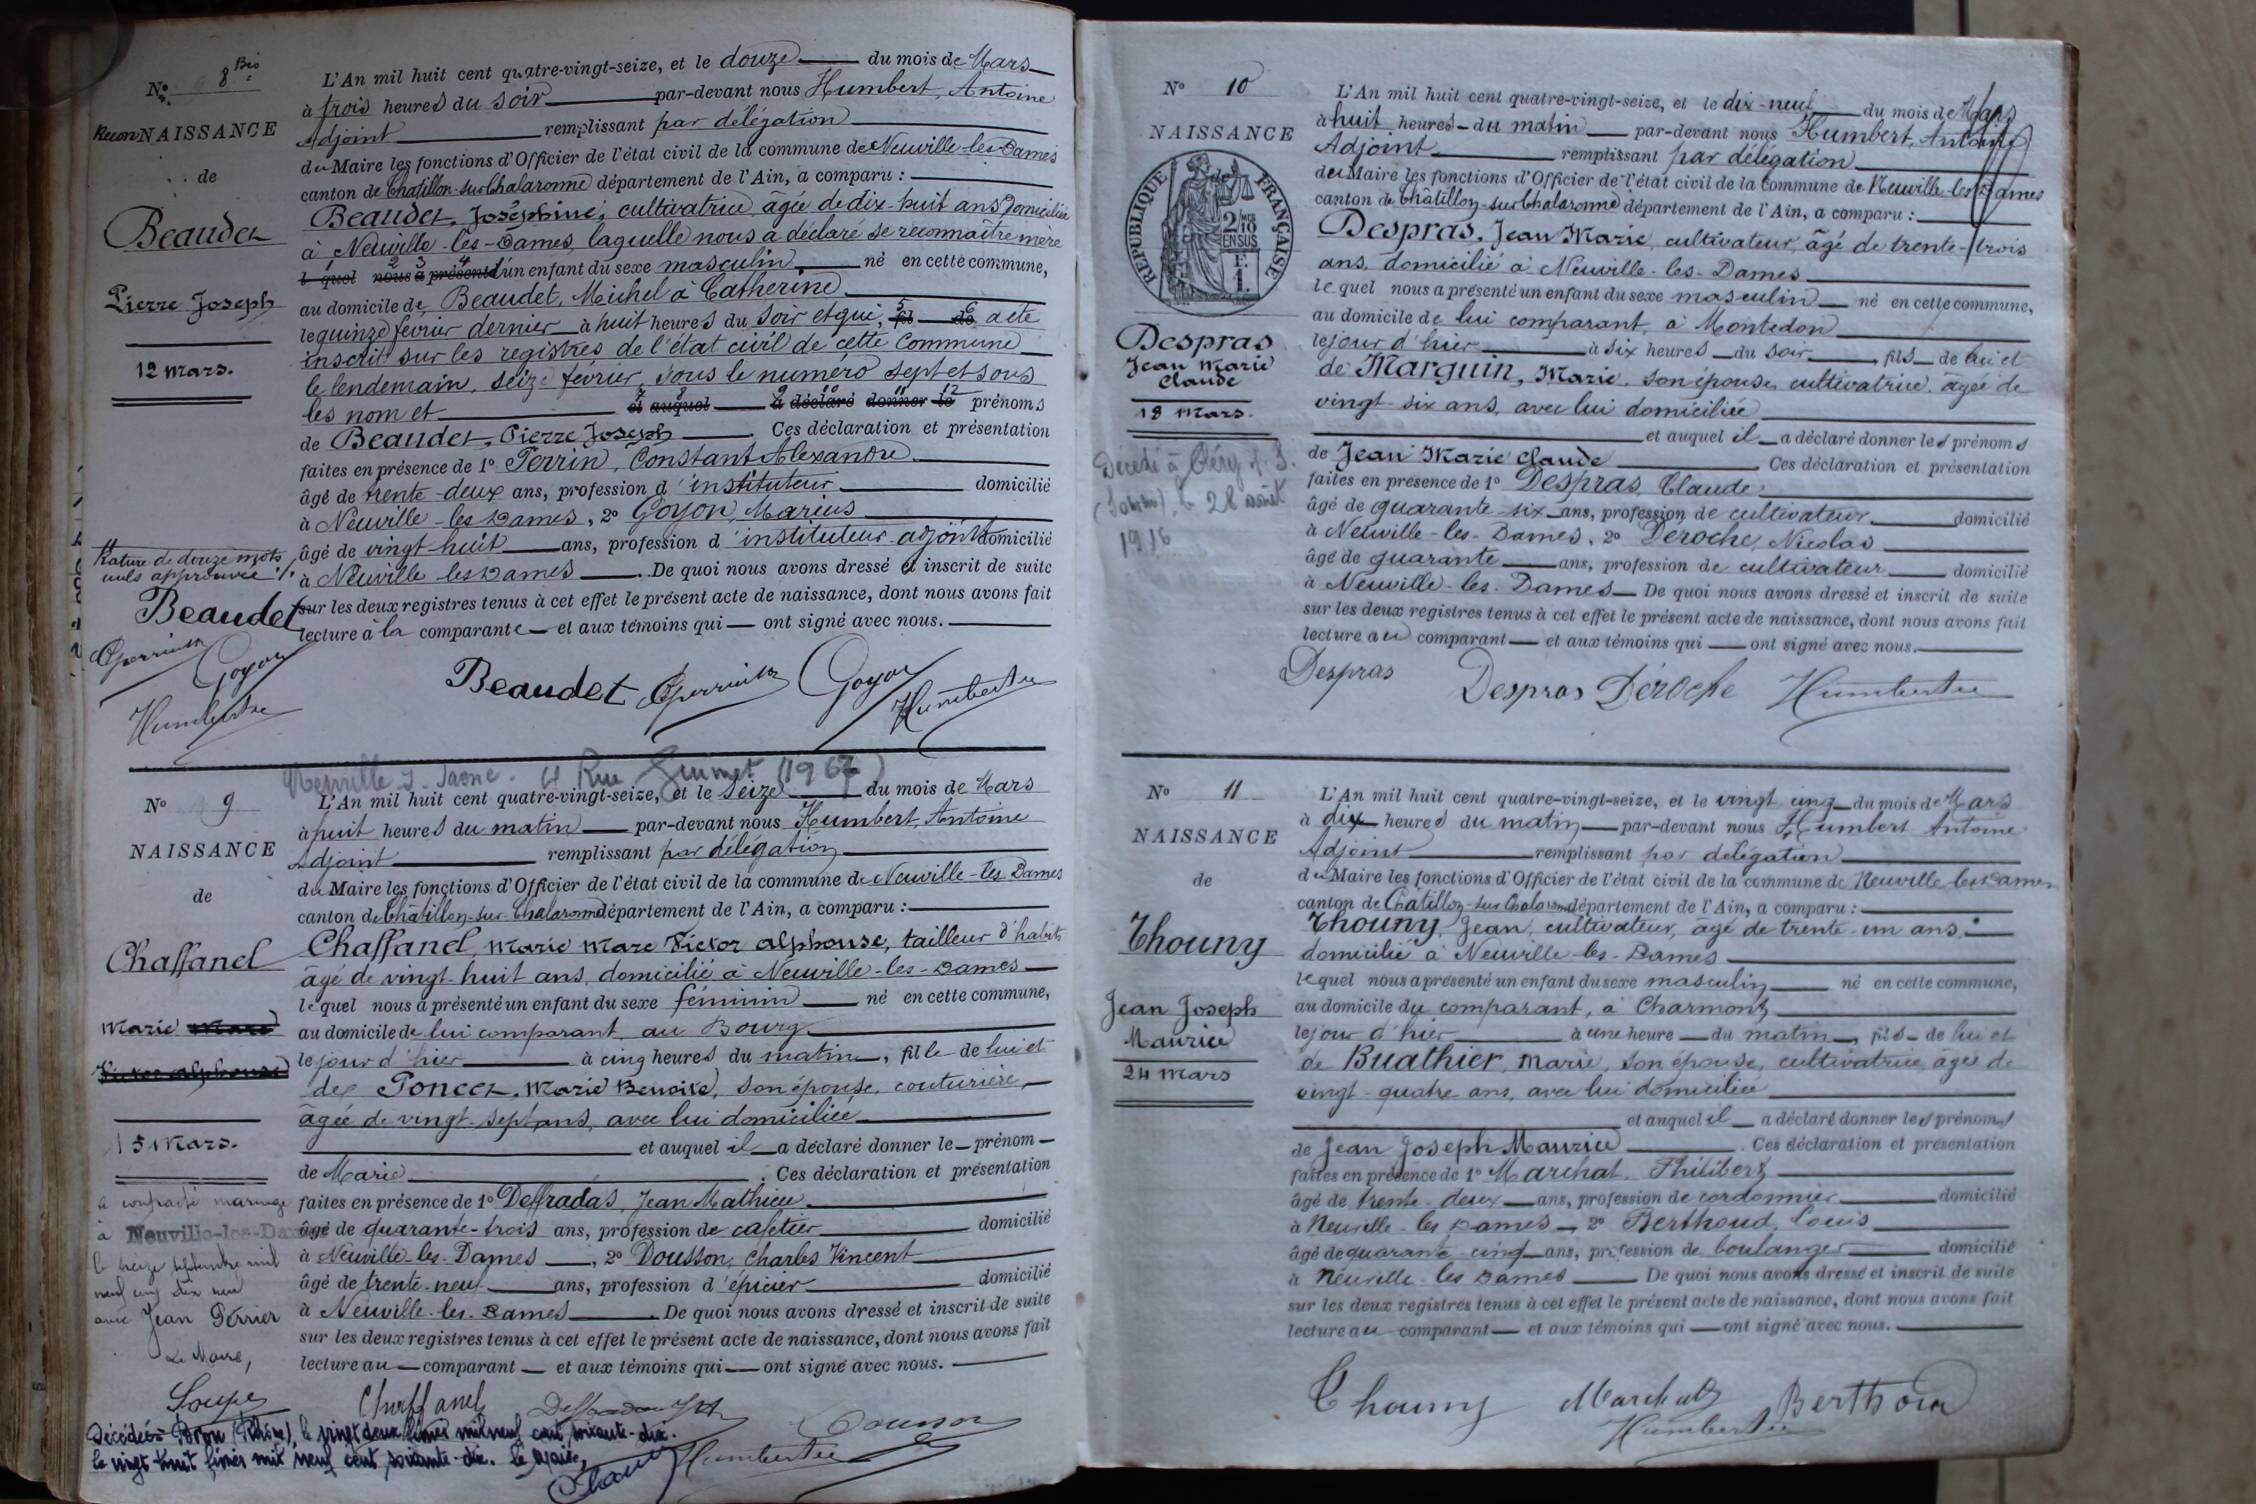 N° 8 Bis
ReconNAISSANCE
de
Beaudet
Pierre Joseph
12 mars.
L'An mil huit cent quatre-vingt-seize, et le douze du mois de Mars
à trois heures du soir par-devant nous Humbert, Antoine
Adjoint remplissant par délégation
du Maire les fonctions d'Officier de l'état civil de la commune de Neuville-les-Dames
canton de Châtillon-sur-Chalaronne département de l'Ain, a comparu :
Beaudet, Joséphine, cultivatrice, âgée de dix-huit ans domiciliée
à Neuville-les-Dames, laquelle nous a déclaré se reconnaître mère
l quel nous a présenté d'un enfant du sexe masculin né en cette commune,
au domicile de Beaudet, Michel à Catherine
le quinze février dernier à huit heures du soir et qui, fil de acte
inscrit sur les registres de l'état civil de cette commune
le lendemain, seize février, sous le numéro sept et sous
les nom et et auquel a déclaré donner le prénoms
de Beaudet, Pierre Joseph. Ces déclaration et présentation
faites en présence de 1° Perrin, Constant Alexandre
âgé de trente-deux ans, profession d'instituteur domicilié
à Neuville-les-Dames, 2° Goyon, Marius
âgé de vingt-huit ans, profession d'instituteur-adjoint domicilié
à Neuville les Dames. De quoi nous avons dressé et inscrit de suite
sur les deux registres tenus à cet effet le présent acte de naissance, dont nous avons fait
lecture à la comparante et aux témoins qui ont signé avec nous.
Rature de douze mots
nuls approuvée
Beaudet
Goyon
Beaudet Goyon
N° 9
NAISSANCE
de
Chaffanel
Marie Marc
Victor Alphonse
15 Mars.
Neuville s. Saone. Rue Guimet (1967)
L'An mil huit cent quatre-vingt-seize, et le seize du mois de Mars
à huit heures du matin par-devant nous Humbert, Antoine
Adjoint remplissant par délégation
du Maire les fonctions d'Officier de l'état civil de la commune de Neuville-les-Dames
canton de Châtillon-sur-Chalaronne département de l'Ain, a comparu :
Chaffanel, Marie Marc Victor Alphonse, tailleur d'habits
âgé de vingt-huit ans, domicilié à Neuville-les-Dames
lequel nous a présenté un enfant du sexe féminin né en cette commune,
au domicile de lui comparant au Bourg
le jour d'hier à cinq heures du matin, fille de lui et
de Poncet, Marie Benoite, son épouse, couturière,
âgée de vingt-sept ans, avec lui domiciliée
et auquel il a déclaré donner le prénom
de Marie. Ces déclaration et présentation
faites en présence de 1° Deffradas, Jean Mathieu
âgé de quarante-trois ans, profession de cafetier domicilié
à Neuville-les-Dames, 2° Dousson, Charles Vincent
âgé de trente-neuf ans, profession d'épicier domicilié
à Neuville-les-Dames. De quoi nous avons dressé et inscrit de suite
sur les deux registres tenus à cet effet le présent acte de naissance, dont nous avons fait
lecture au comparant et aux témoins qui ont signé avec nous.
a contracté mariage
à Neuville-les-Dames
le seize septembre mil
neuf cent dix neuf
avec Jean Perrier
Le Maire,
Chaffanel Dousson
Décédée à Bron (Rhône), le vingt deux février mil neuf cent soixante-dix.
le vingt-huit février mil neuf cent soixante-dix. Le Maire,
N° 10
NAISSANCE
RÉPUBLIQUE FRANÇAISE
2/10 EN SUS
Despras
Jean Marie
Claude
18 Mars.
Décédé à Cléry s. S.
(Somme), le 28 août
1916
L'An mil huit cent quatre-vingt-seize, et le dix-neuf du mois de Mars
à huit heures du matin par-devant nous Humbert, Antoine
Adjoint remplissant par délégation
du Maire les fonctions d'Officier de l'état civil de la commune de Neuville-les-Dames
canton de Châtillon-sur-Chalaronne département de l'Ain, a comparu :
Despras, Jean Marie, cultivateur, âgé de trente-trois
ans, domicilié à Neuville-les-Dames
lequel nous a présenté un enfant du sexe masculin né en cette commune,
au domicile de lui comparant, à Montedon
le jour d'hier à six heures du soir, fils de lui et
de Marguin, Marie, son épouse, cultivatrice, âgée de
vingt-six ans, avec lui domiciliée
et auquel il a déclaré donner les prénoms
de Jean Marie Claude. Ces déclaration et présentation
faites en présence de 1° Despras, Claude
âgé de quarante-six ans, profession de cultivateur domicilié
à Neuville-les-Dames, 2° Deroche, Nicolas
âgé de quarante ans, profession de cultivateur domicilié
à Neuville-les-Dames. De quoi nous avons dressé et inscrit de suite
sur les deux registres tenus à cet effet le présent acte de naissance, dont nous avons fait
lecture au comparant et aux témoins qui ont signé avec nous.
Despras Despras Déroche
N° 11
NAISSANCE
de
Thouny
Jean Joseph
Maurice
24 Mars
L'An mil huit cent quatre-vingt-seize, et le vingt cinq du mois de Mars
à dix heures du matin par-devant nous Humbert Antoine
Adjoint remplissant par délégation
du Maire les fonctions d'Officier de l'état civil de la commune de Neuville-les-Dames
canton de Châtillon-sur-Chalaronne département de l'Ain, a comparu :
Thouny, Jean, cultivateur, âgé de trente-un ans
domicilié à Neuville-les-Dames
lequel nous a présenté un enfant du sexe masculin né en cette commune,
au domicile du comparant, à Charmont
le jour d'hier à une heure du matin, fils de lui et
de Buathier, Marie, son épouse, cultivatrice, âgée de
vingt-quatre ans, avec lui domiciliée
et auquel il a déclaré donner les prénoms
de Jean Joseph Maurice. Ces déclaration et présentation
faites en présence de 1° Marchat, Philibert
âgé de trente-deux ans, profession de cordonnier domicilié
à Neuville-les-Dames, 2° Berthoud, Louis
âgé de quarante-cinq ans, profession de boulanger domicilié
à Neuville-les-Dames. De quoi nous avons dressé et inscrit de suite
sur les deux registres tenus à cet effet le présent acte de naissance, dont nous avons fait
lecture au comparant et aux témoins qui ont signé avec nous.
Thouny Marchat Berthoud